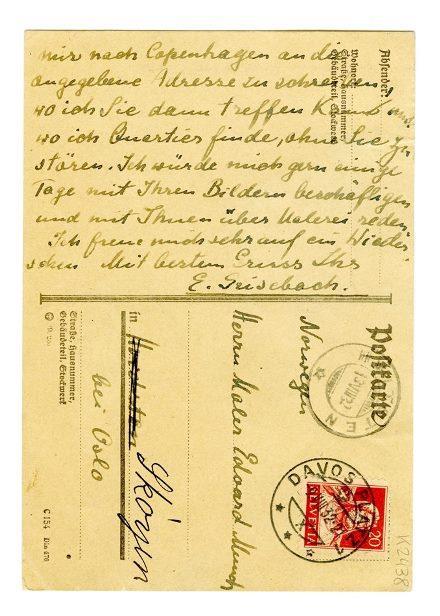 mir nach Copenhagen an die
angegebene Adresse zu schreiben,
wo ich Sie dann treffen kann und
wo ich Quartier finde, ohne Sie zu
stören. Ich würde mich gern einige
Tage mit Ihren Bildern beschäftigen
und mit Ihnen über Malerei reden.
Ich freue mich sehr auf ein Wieder-
sehen Mit bestem Gruss Ihr
E. Grisebach.
Absender:
Wohnort
Straße, Hausnummer,
Gebäudeteil, Stockwerk
Postkarte
Norwegen
Herrn Maler Edvard Munch
in
Skøyen
bei Oslo
Straße, Hausnummer,
Gebäudeteil, Stockwerk
DAVOS PLATZ
HELVETIA
20
C 154 Din 476
K2438